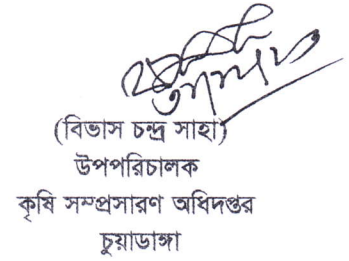 (বিভাস চন্দ্র সাহা)
উপপরিচালক
কৃষি সম্প্রসারণ অধিদপ্তর
চুয়াডাঙ্গা